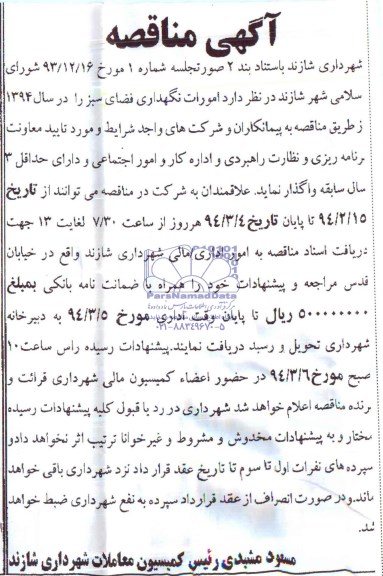 آگهی مناقصه
شهرداری شازند باستناد بند ۲ صورتجلسه شماره ۱ مورخ ۹۳/۱۲/۱۶ شورای
سلامی شهر شازند در نظر دارد امورات نگهداری فضای سبز را در سال ۱۳۹۴
ز طریق مناقصه به پیمانکاران و شرکت های واجد شرایط و مورد تایید معاونت
برنامه ریزی و نظارت راهبردی و اداره کار و امور اجتماعی و دارای حداقل ۳
سال سابقه واگذار نماید. علاقمندان به شرکت در مناقصه می توانند از تاریخ
۹۴/۲/۱۵ تا پایان تاریخ ۹۴/۳/۴ هرروز از ساعت ۷/۳۰ لغایت ۱۳ جهت
دریافت اسناد مناقصه به امور اداری مالی شهرداری شازند واقع در خیابان
قدس مراجعه و پیشنهادات خود را همراه با ضمانت نامه بانکی بمبلغ
ParsNamadData
۵۰۰۰۰۰۰۰۰ ریال تا پایان وقت اداری مورخ ۹۴/۳/۵ به دبیرخانه
۰۲۱-۸۸۳۴۹۶۷۰-۵
شهرداری تحویل و رسید دریافت نمایند.پیشنهادات رسیده راس ساعت ۱۰
صبح مورخ ۹۴/۳/۶ در حضور اعضاء کمیسیون مالی شهرداری قرائت و
برنده مناقصه اعلام خواهد شد شهرداری در رد یا قبول کلیه پیشنهادات رسیده
مختار و به پیشنهادات مخدوش و مشروط و غیرخوانا ترتیب اثر نخواهد دادو
سپرده های نفرات اول تا سوم تا تاریخ عقد قرار داد نزد شهرداری باقی خواهد
ماند.ودر صورت انصراف از عقد قرارداد سپرده به نفع شهرداری ضبط خواهد
شد.
مسعود مشیدی رئیس کمیسیون معاملات شهرداری شازند